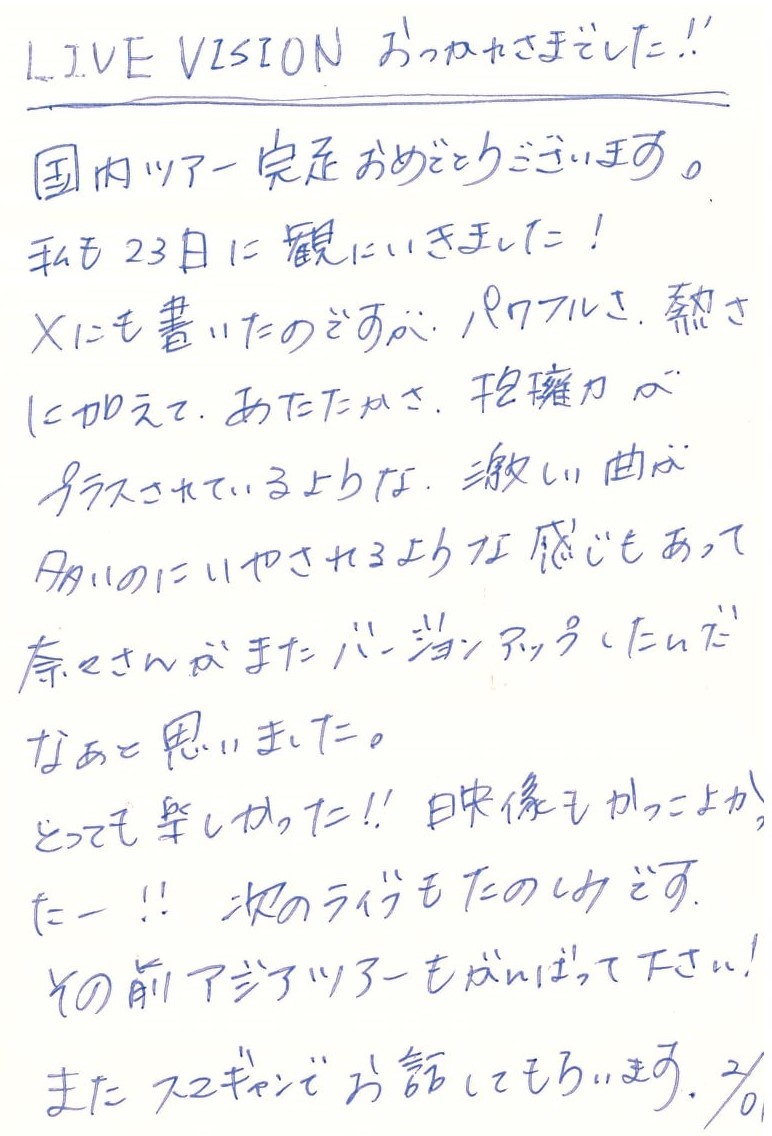 LIVE VISION おつかれさまでした!!
国内ツアー完走おめでとうございます。
私も23日に観にいきました!
Xにも書いたのですが、パワフルさ、熱さ
に加えて、あたたかさ、抱擁力が
プラスされているような、激しい曲が
多いのにいやされるような感じもあって
奈々さんがまたバージョンアップしたんだ
なぁと思いました。
とっても楽しかった!! 映像もかっこよかっ
たー!! 次のライブもたのしみです。
その前アジアツアーもがんばって下さい!
またスマギャンでお話してもらいます。2/01